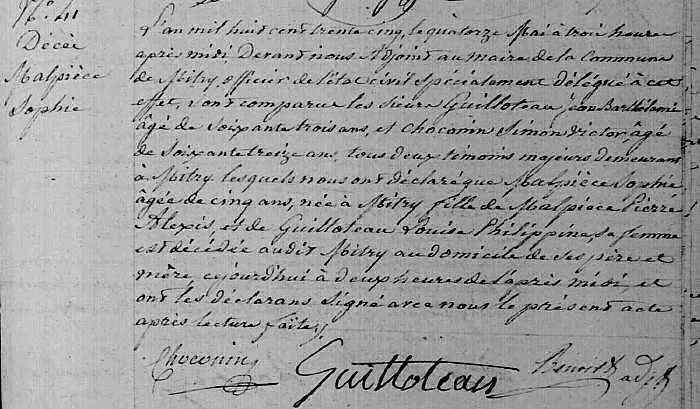 N.° 41
Décès
Malpièce
Sophie
L'an mil huit cent trente cinq, le quatorze Mai à trois heure
après midi, Devant nous Adjoint au maire de la Commune
de Mitry, officier de l'état civil spécialement délégué à cet
effet, sont comparu les sieurs Guilloteau jean Barthélemi
âgé de soixante trois ans, et Choconin Simon Victor, âgé
de soixante treize ans, tous deux témoins majeurs demeurant
à Mitry, lesquels nous ont déclaré que Malpièce Sophie,
âgée de cinq ans, née à Mitry, fille de Malpièce Pierre
Alexis, et de Guilloteau Louise Philippine, sa femme
est décédée audit Mitry au domicile de ses père et
mère, cejourd'hui à deux heures de l'après midi, et
ont les déclarans signé avec nous le présent acte
après lecture faite ./.
Choconin Guilloteau Benoist adjt